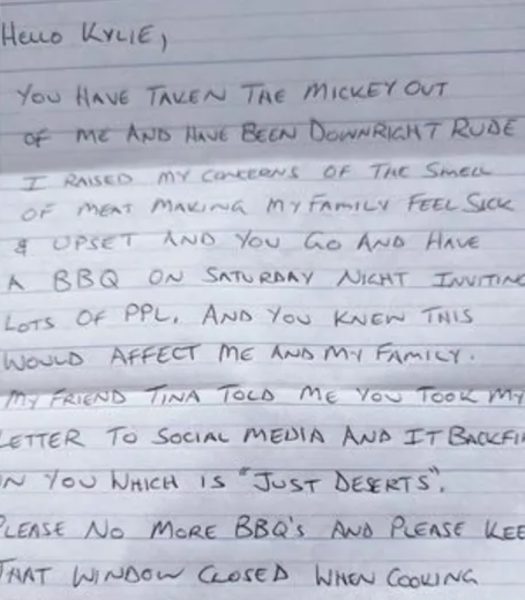 Hello Kylie,
You have taken the mickey out
of me and have been downright rude
I raised my concerns of the smell
of meat making my family feel sick
& upset and you go and have
a BBQ on Saturday night inviting
lots of ppl. And you knew this
would affect me and my family.
My friend Tina told me you took my
letter to social media and it backfi
on you which is "just deserts".
Please no more BBQ's and please kee
that window closed when cooking